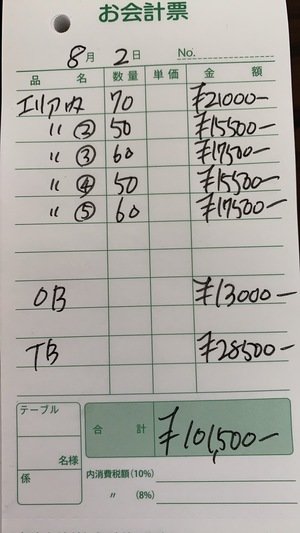 お会計票
8月 2日 No.
品 名 数量 単価 金 額
エリア 70 ¥21000-
〃 ② 50 ¥15500-
〃 ③ 60 ¥17500-
〃 ④ 50 ¥15500-
〃 ⑤ 60 ¥17500-
OB ¥13000-
TB ¥28500-
テーブル
名様
係
合 計 ¥101,500-
内消費税額(10%)
〃 (8%)